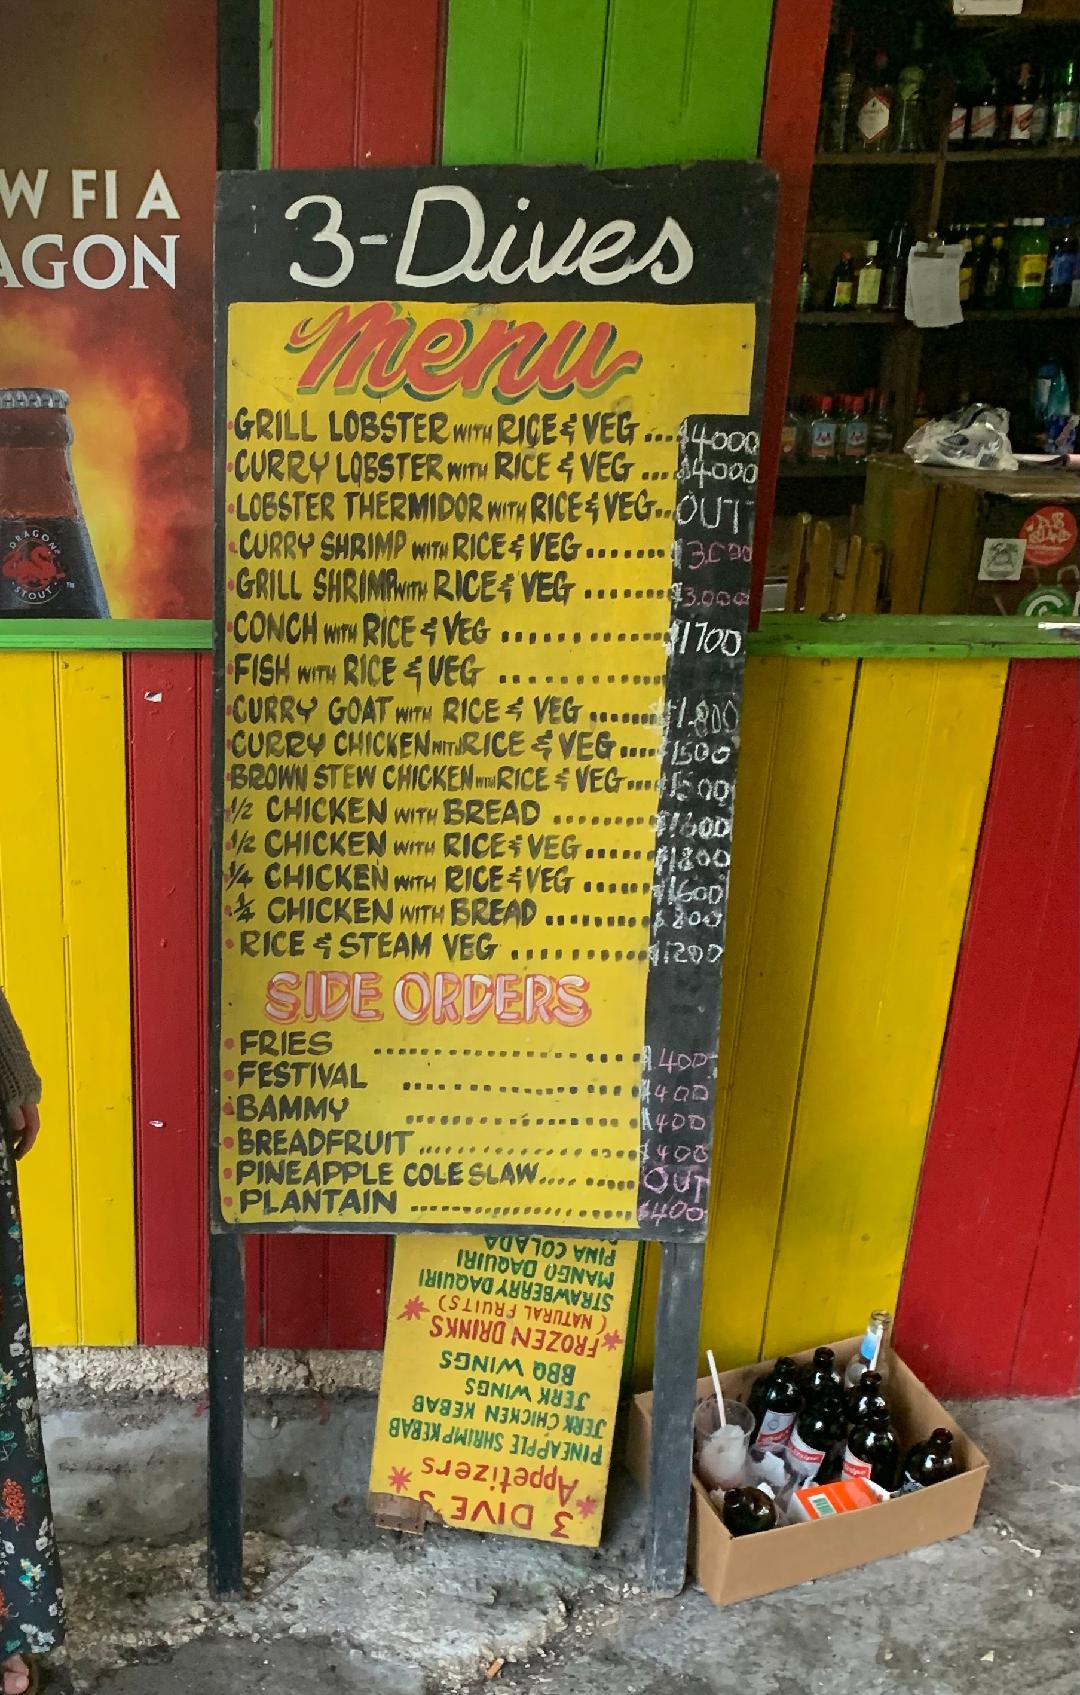 W FI A
AGON
DRAGON
STOUT
3-Dives
menu
GRILL LOBSTER WITH RICE & VEG .... $4000
CURRY LOBSTER WITH RICE & VEG ... $4000
LOBSTER THERMIDOR WITH RICE & VEG... OUT
CURRY SHRIMP WITH RICE & VEG ....... $3.000
GRILL SHRIMP WITH RICE & VEG ........ $3.000
CONCH WITH RICE & VEG ............... $1700
FISH WITH RICE & VEG ...............
CURRY GOAT WITH RICE & VEG ....... $1.800
CURRY CHICKEN WITH RICE & VEG .... $1500
BROWN STEW CHICKEN WITH RICE & VEG ... $1500
1/2 CHICKEN WITH BREAD ......... $1600
1/2 CHICKEN WITH RICE & VEG ...... $1800
1/4 CHICKEN WITH RICE & VEG ...... $1600
1/4 CHICKEN WITH BREAD ......... $800
RICE & STEAM VEG ............ $1200
SIDE ORDERS
FRIES ........................ $400
FESTIVAL ..................... $400
BAMMY ..................... $400
BREADFRUIT .................... $400
PINEAPPLE COLE SLAW.... ..... OUT
PLANTAIN .................... $400
3 DIVE'S
Appetizers
PINEAPPLE SHRIMP KEBAB
JERK CHICKEN KEBAB
JERK WINGS
BBQ WINGS
FROZEN DRINKS
(NATURAL FRUITS)
STRAWBERRY DAQUIRI
MANGO DAQUIRI
PINA COLADA